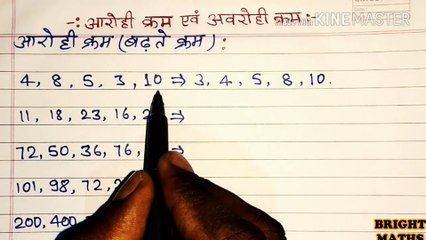 -: आरोही क्रम एवं अवरोही क्रम:-
आरोही क्रम (बढ़ते क्रम) :
4, 8, 5, 3, 10 ⇒ 3, 4, 5, 8, 10.
11, 18, 23, 16, ⇒
72, 50, 36, 76,
101, 98, 72,
200, 400
Made with
KINEMASTER
BRIGHT
MATHS